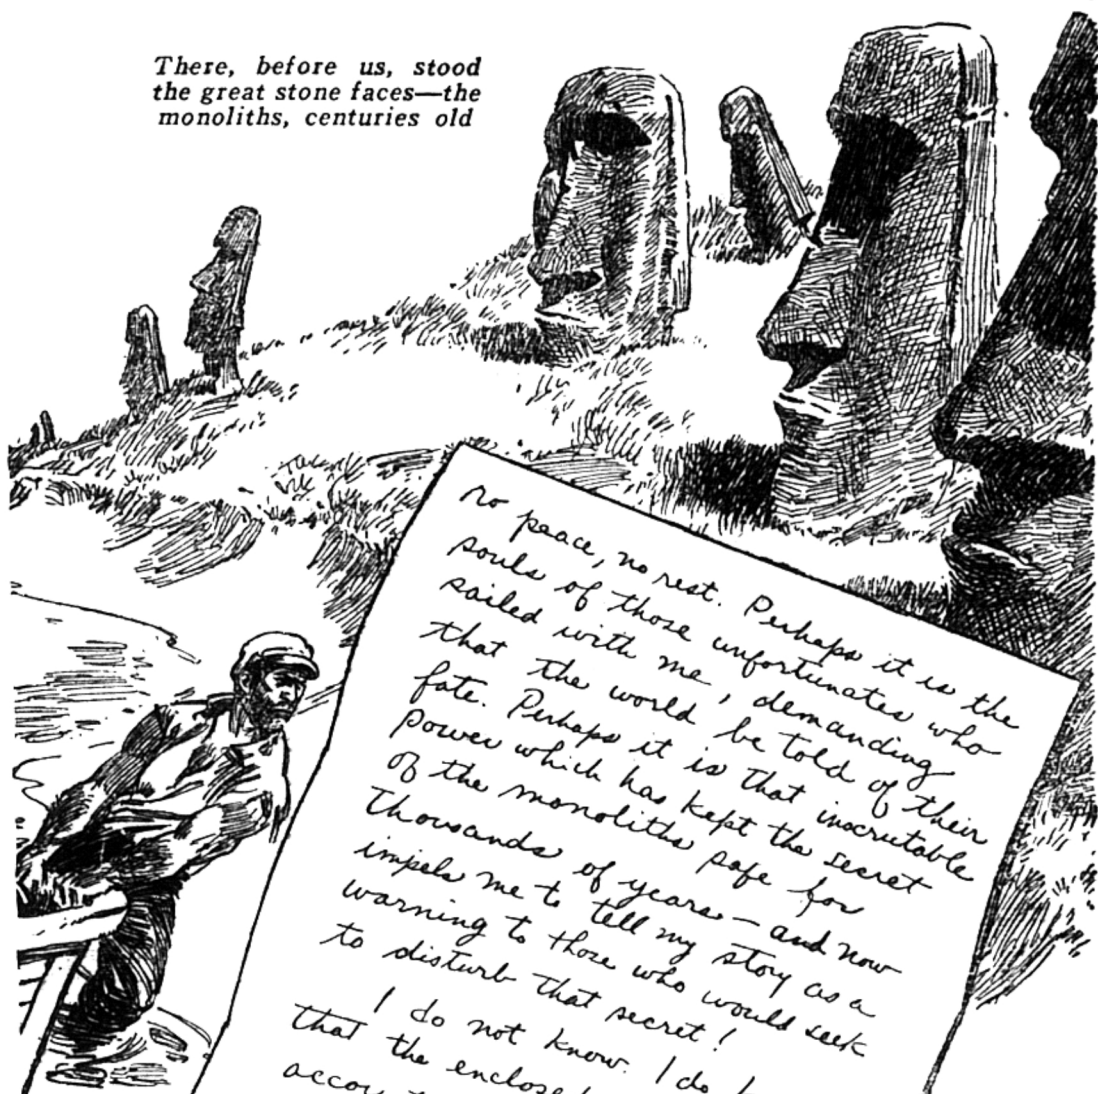 There, before us, stood
the great stone faces—the
monoliths, centuries old
no peace, no rest. Perhaps it is the
souls of those unfortunates who
sailed with me, demanding
that the world be told of their
fate. Perhaps it is that inscrutable
power which has kept the secret
of the monoliths safe for
thousands of years—and now
impels me to tell my story as a
warning to those who would seek
to disturb that secret!
I do not know. I do
that the